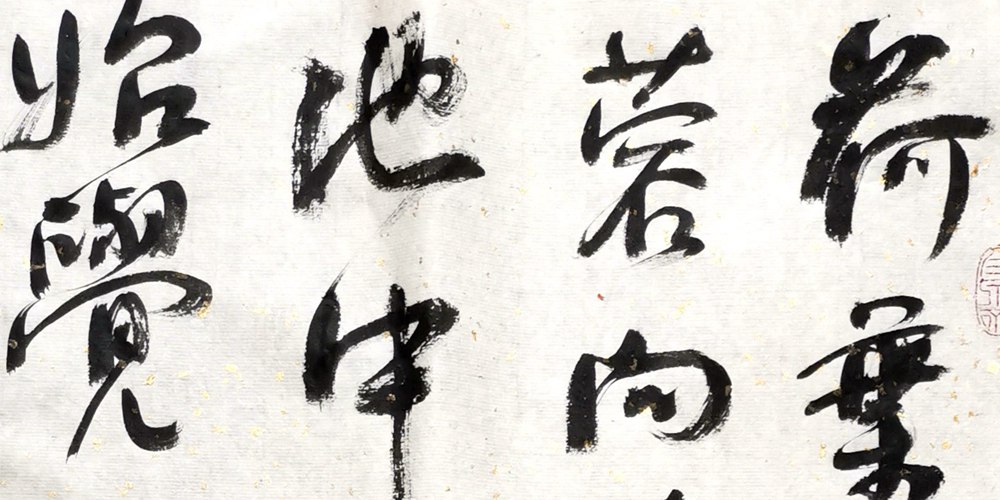 荷葉
蓉向
池中
始覺